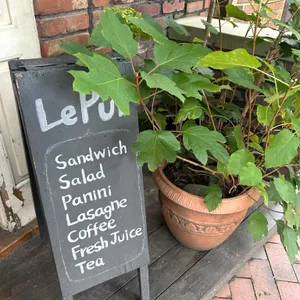 Sandwich
Salad
Panini
Lasagne
Coffee
Fresh Juice
Tea